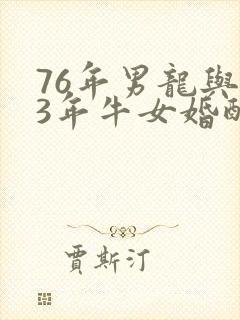 76年男龍與
3年牛女婚配
賈斯汀